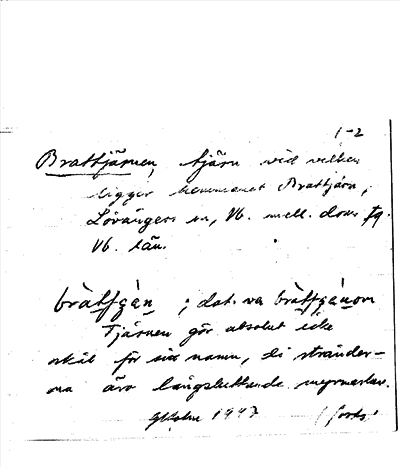 1-2
Brattjärnen, tjärn vid vilken
ligger hemmanet Brattjärn,
Lövångers sn, Vb. mell. doms fg.
Vb. län.
bràtfgàn ; dat. va bràtfgànom
Tjärnen gör absolut icke
skäl för sitt namn, ty stränder-
na äro långsluttande myrmarker.
1947 (forts.